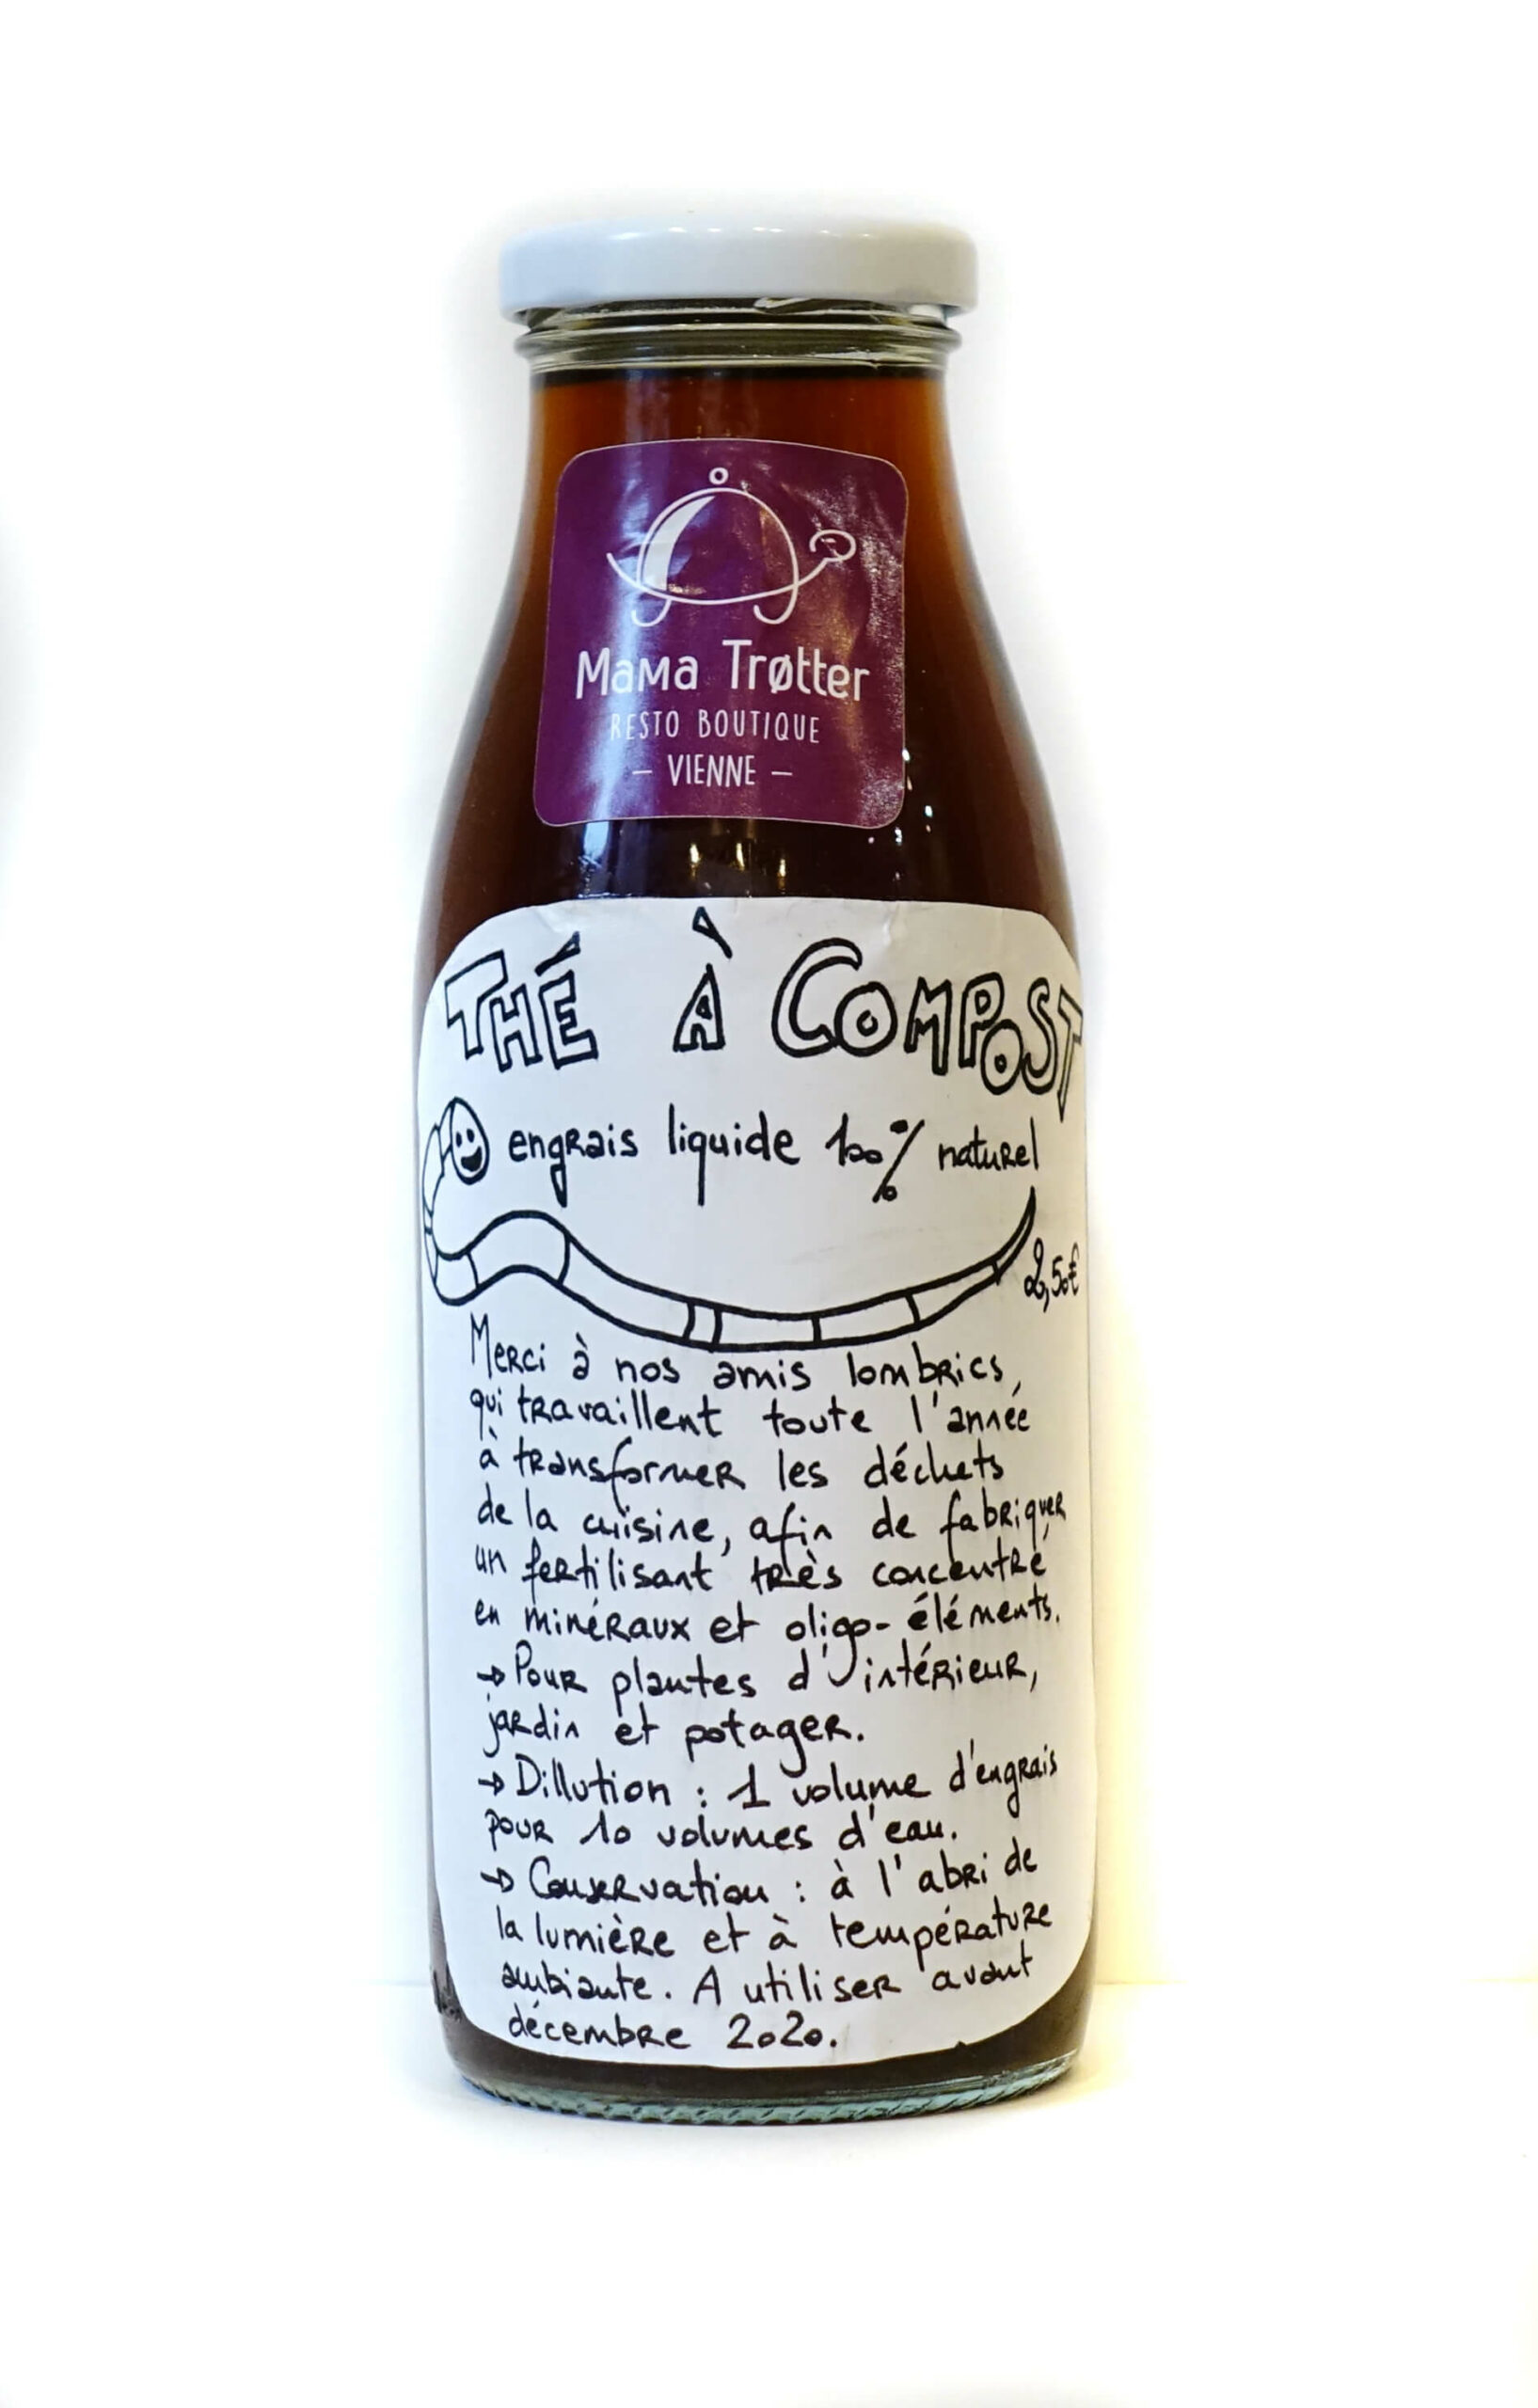 Mama Trøtter
RESTO BOUTIQUE
- VIENNE -
THÉ À COMPOST
engrais liquide 100% naturel
2,50€
Merci à nos amis lombrics,
qui travaillent toute l'année
à transformer les déchets
de la cuisine, afin de fabriquer
un fertilisant très concentré
en minéraux et oligo-éléments.
→ Pour plantes d'intérieur,
jardin et potager.
→ Dillution : 1 volume d'engrais
pour 10 volumes d'eau.
→ Conservation : à l'abri de
la lumière et à température
ambiante. A utiliser avant
décembre 2020.